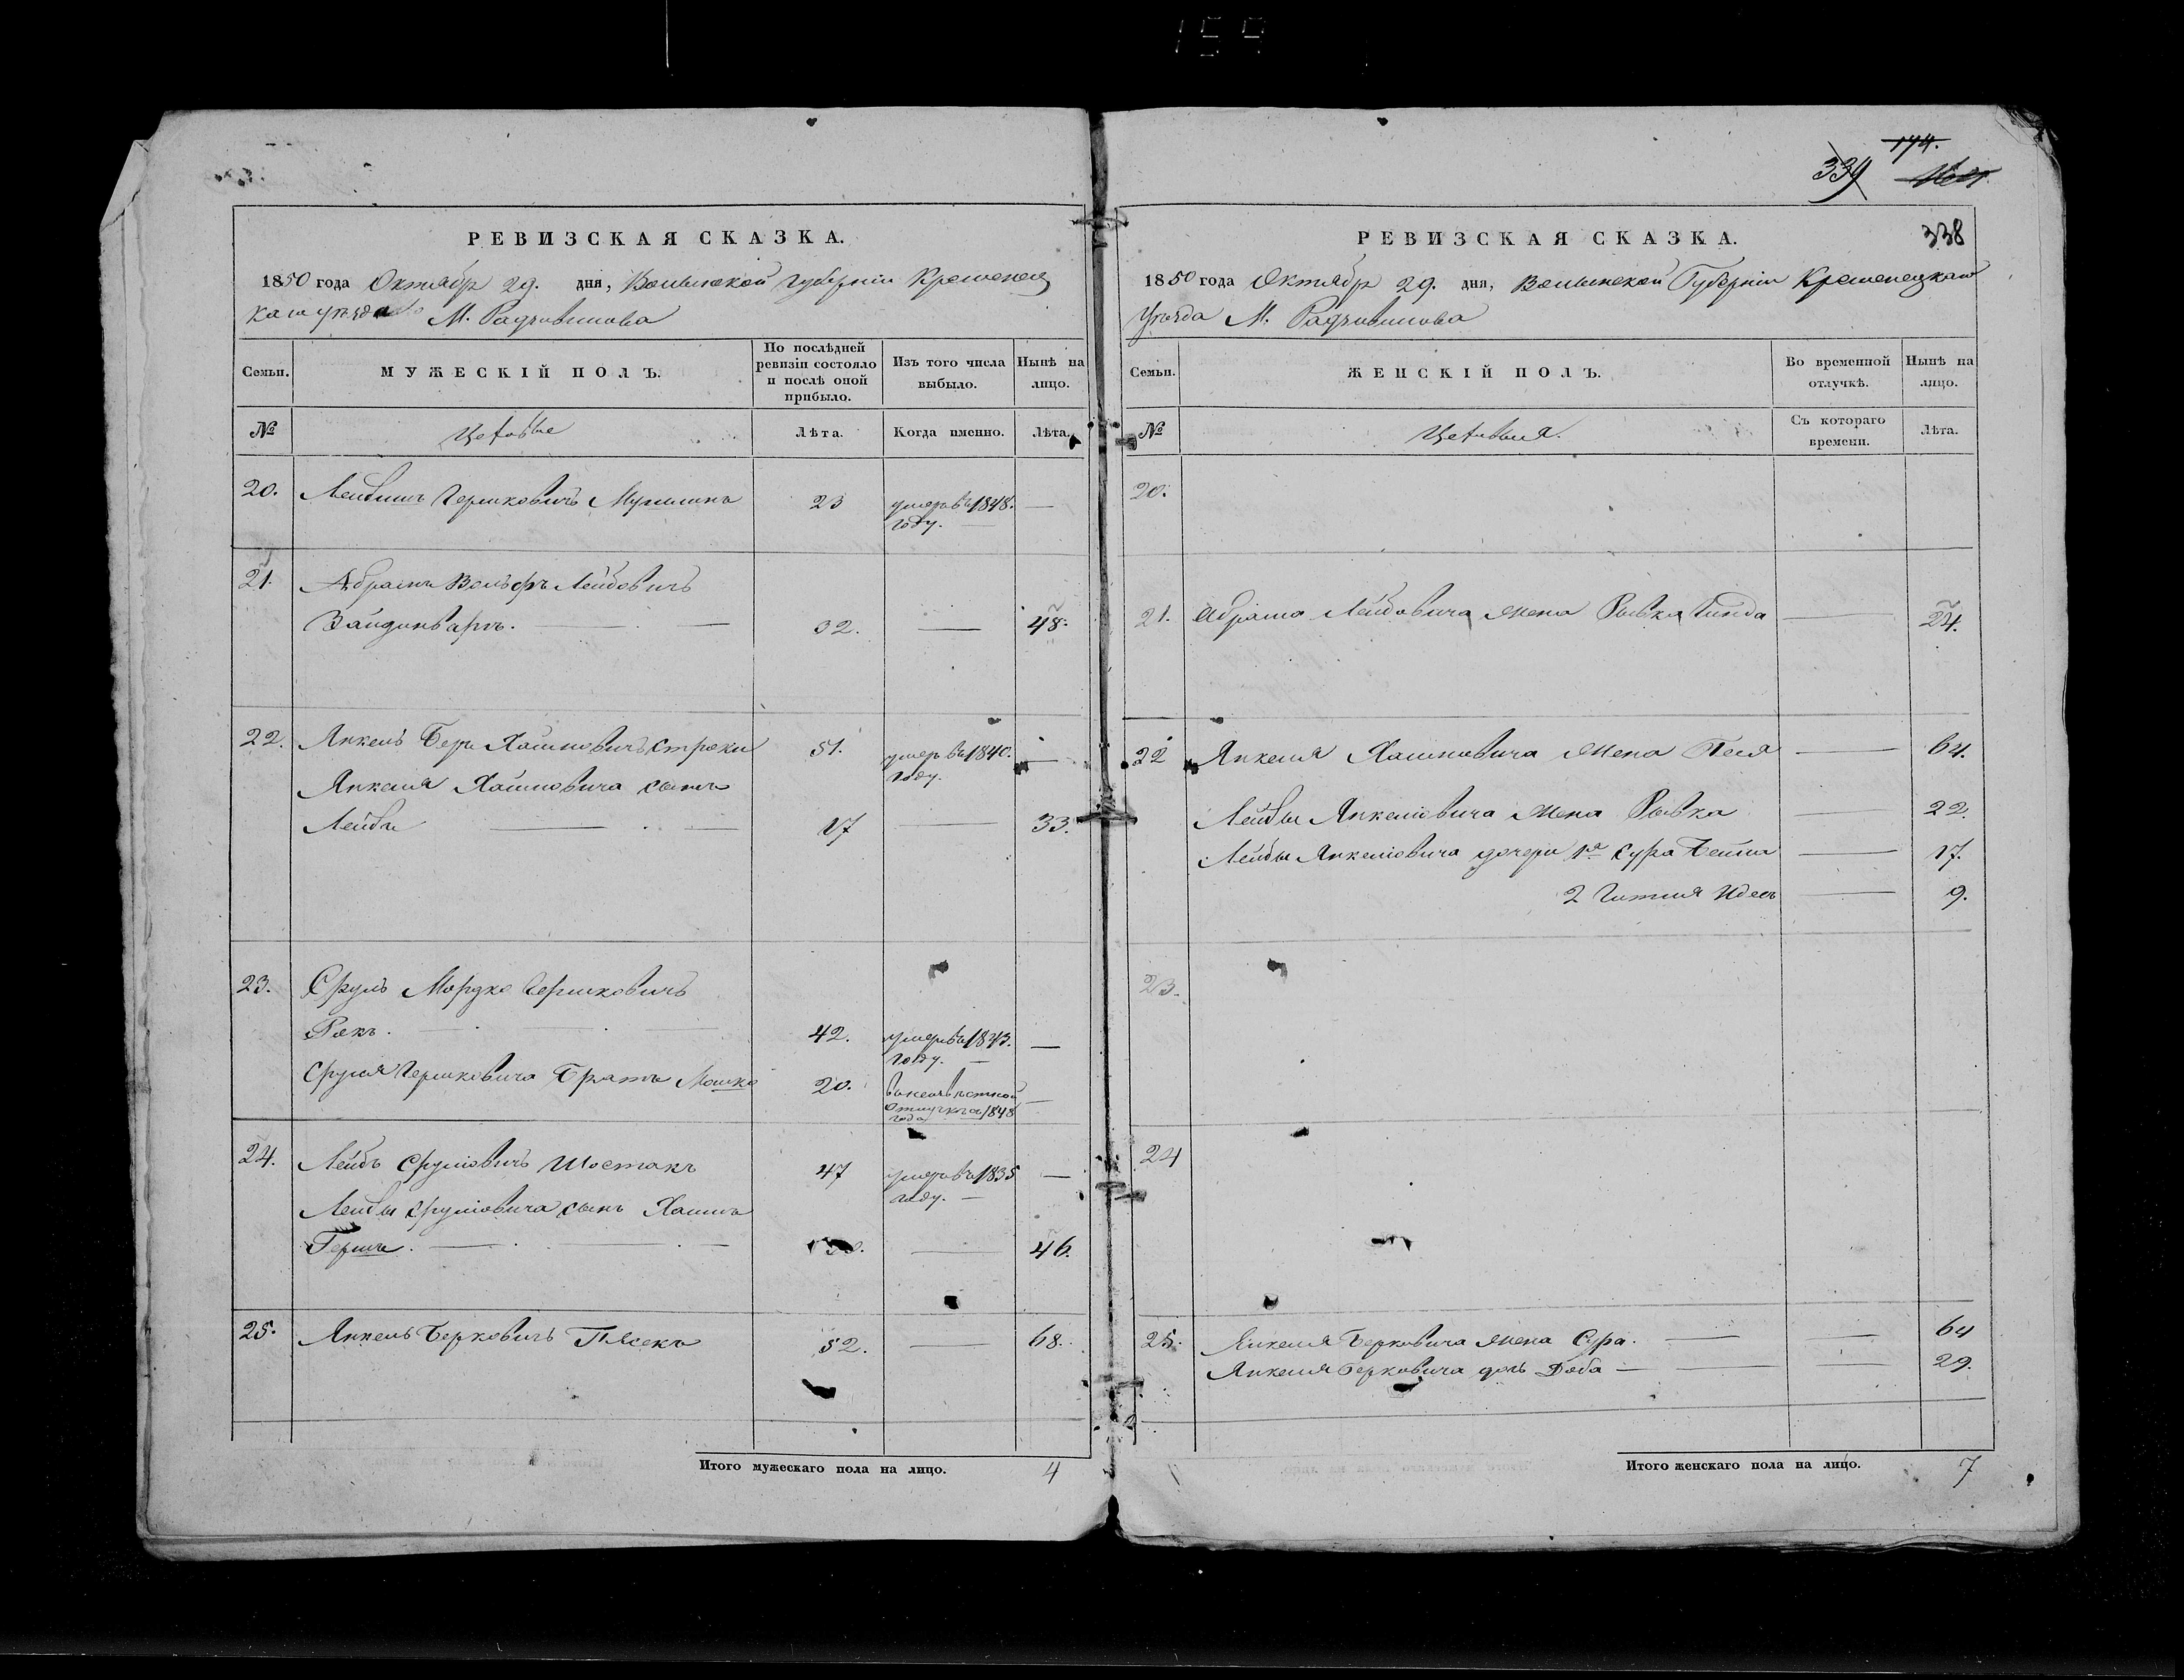 159
РЕВИЗСКАЯ СКАЗКА.
1850 года Октября 29. дня, Волынской Губерніи Кременец
каго уѣзда М. Радзивилова
Семьи. МУЖЕСКІЙ ПОЛЪ. По послѣдней ревизіи состояло и послѣ оной прибыло. Изъ того числа выбыло. Нынѣ на лицо.
№ Цеховые Лѣта. Когда именно. Лѣта.
20. Лейбишъ Гершковичъ 23 умеръ въ 1848. —
году.
21. Абрамъ Вольфъ Лейбовичъ
Вайдинвармъ. — 32. — 48.
22. Янкель Беръ Хаимовичъ Строки 51. умеръ въ 1840. —
году.
Янкеля Хаимовича сынъ
Лейба — 17 — 33.
23. Сруль Мордко Гершковичъ
Рокъ. — 42. умеръ въ 1843. —
году. —
Сруля Гершковича Братъ Мошко 20. въ неизвѣстной —
отлучкѣ съ 1848
года
24. Лейбъ Срулiовичъ Шостакъ 47 умеръ въ 1835 —
году. —
Лейбы Срулiовича сынъ Хаимъ
Гершъ. — — 46.
25. Янкель Берковичъ Пясекъ 52. — 68.
Итого мужескаго пола на лицо. 4
174.
339
338
РЕВИЗСКАЯ СКАЗКА.
1850 года Октября 29. дня, Волынской Губерніи Кременецкаго
Уѣзда М. Радзивилова
Семьи. ЖЕНСКІЙ ПОЛЪ. Во временной отлучкѣ. Нынѣ на лицо.
№ Цеховыя. Съ котораго времени. Лѣта.
20.
21. Абрама Лейбовича жена Рывка Гинда — 24.
22 Янкеля Хаимовича жена Песя — 64.
Лейбы Янкеліовича жена Рывка — 22.
Лейбы Янкеліовича дочери 1я Сура Бейла — 17.
2 Гитля Идесъ — 9.
23.
24
25. Янкеля Берковича жена Сура. — — 64
Янкеля Берковича дочь Доба — — 29.
Итого женскаго пола на лицо. 7